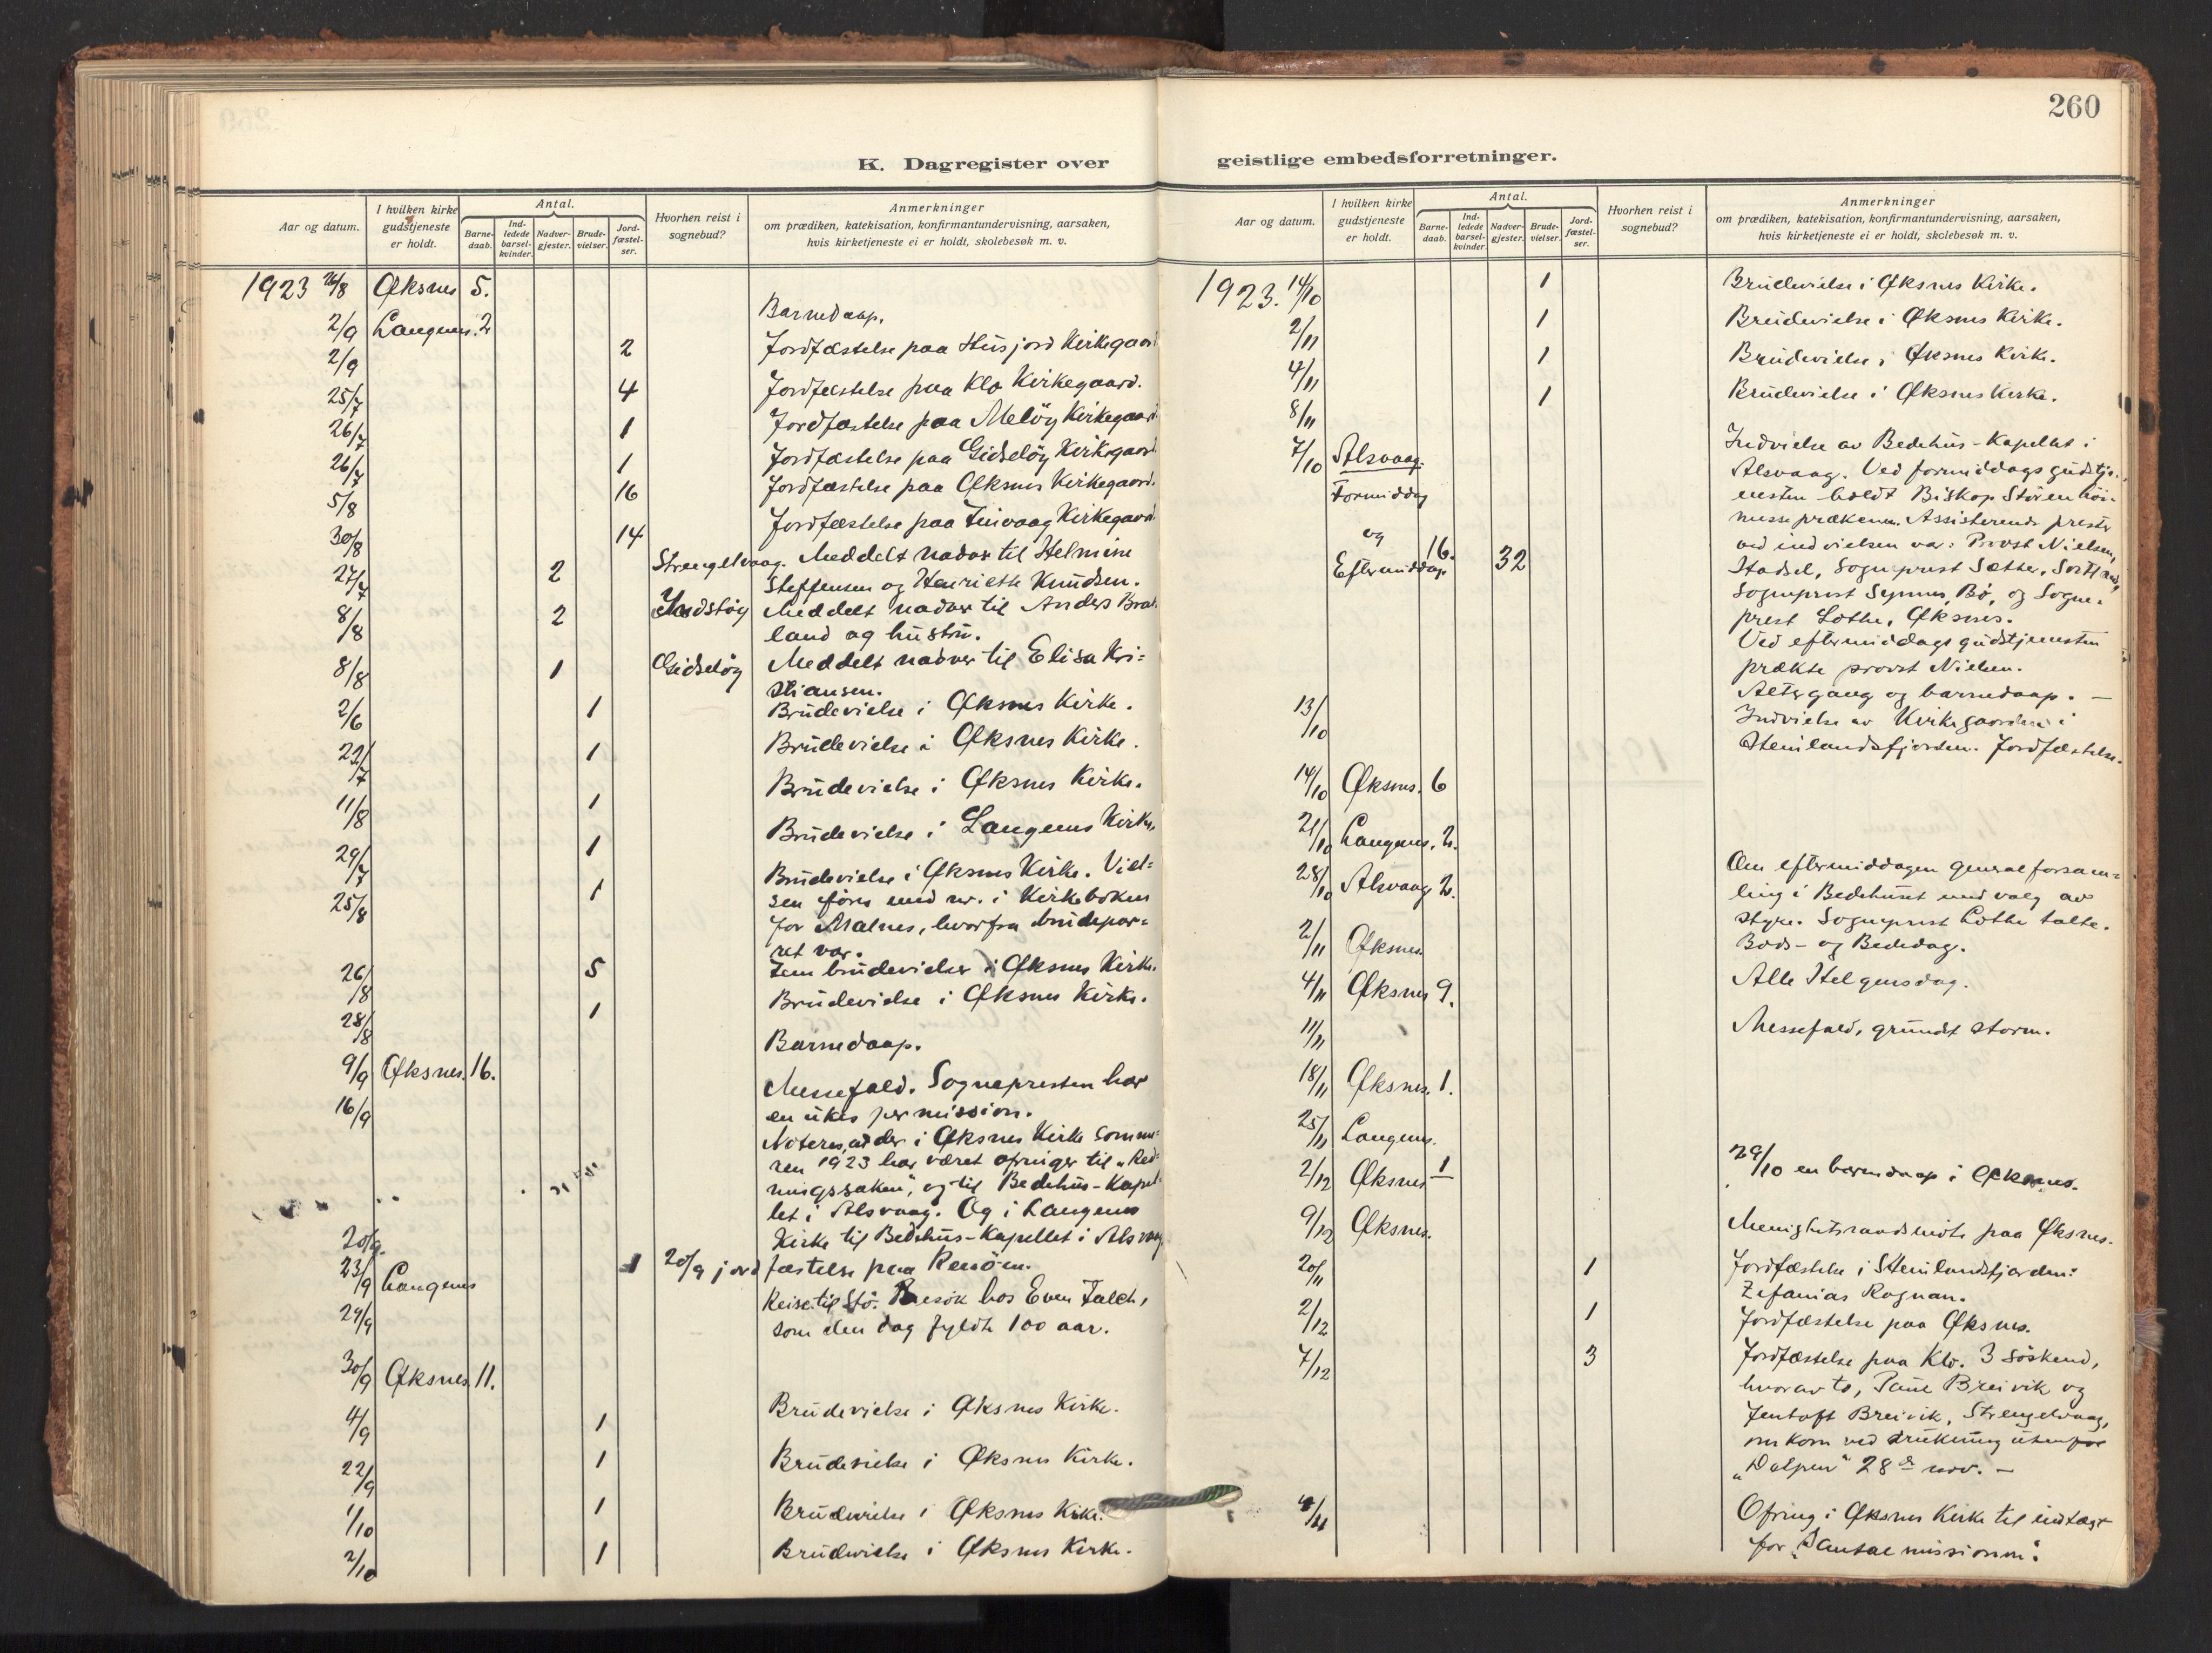 260
K. Dagregister over geistlige embedsforretninger.
Aar og datum.
I hvilken kirke gudstjeneste er holdt.
Antal.
Barne-daab.
Ind-ledede barsel-kvinder.
Nadver-gjester.
Brude-vielser.
Jord-fæstel-ser.
Hvorhen reist i sognebud?
Anmerkninger
om prædiken, katekisation, konfirmantundervisning, aarsaken,
hvis kirketjeneste ei er holdt, skolebesøk m. v.
1923 26/8 Øksnes 5.
Barnedaap.
2/9 Langenes. 2
2/9 2 Jordfæstelse paa Husjord Kirkegaard
25/7 4 Jordfæstelse paa Klo Kirkegaard.
26/7 1 Jordfæstelse paa Meløy Kirkegaard.
26/7 1 Jordfæstelse paa Gidsløy Kirkegaard
5/8 16 Jordfæstelse paa Øksnes Kirkegaard.
30/8 14 Jordfæstelse paa Tinvaag Kirkegaard
27/7 2 Strengelvaag. Meddelt nadver til Helmine
Steffensen og Henriette Knudsen.
8/8 2 Meddelt nadver til Anders
land og hustru.
8/8 1 Gidsløy Meddelt nadver til Elisa Kri-
stiansen.
2/6 1 Brudevielse i Øksnes Kirke.
22/7 1 Brudevielse i Øksnes Kirke.
11/8 1 Brudevielse i Øksnes Kirke.
29/7 1 Brudevielse i Langenes Kirke.
25/8 1 Brudevielse i Øksnes Kirke. Viel-
sen føres med nr. i Kirkeboken
for Malnes, hvorfra brudepar-
ret var.
26/8 5 Fem brudevielser i Øksnes Kirke.
28/8 1 Brudevielse i Øksnes Kirke.
9/9 Øksnes. 16. Barnedaap.
16/9 Messefald. Sognepresten har
en ukes permission.
Noteres, at der i Øksnes Kirke somme-
ren 1923 har været ofringer til "Red-
ningssaken", og til Bedehus-Kapel-
let i Alsvaag. Og i Langenes
Kirke til Bedehus-Kapellet i Alsvaag
20/9. 1 20/9 jordfæstelse paa
23/9 Langenes
29/9 Reise til Stø. Besøk hos Even Falch,
som den dag fyldte 100 aar.
30/9 Øksnes. 11.
4/9 1 Brudevielse i Øksnes Kirke.
22/9 1 Brudevielse i Øksnes Kirke.
1/10 1 Brudevielse i Øksnes Kirke.
2/10 1 Brudevielse i Øksnes Kirke.
Aar og datum.
I hvilken kirke gudstjeneste er holdt.
Antal.
Barne-daab.
Ind-ledede barsel-kvinder.
Nadver-gjester.
Brude-vielser.
Jord-fæstel-ser.
Hvorhen reist i sognebud?
Anmerkninger
om prædiken, katekisation, konfirmantundervisning, aarsaken,
hvis kirketjeneste ei er holdt, skolebesøk m. v.
1923. 14/10 1 Brudevielse i Øksnes Kirke.
2/11 1 Brudevielse i Øksnes Kirke.
4/11 1 Brudevielse i Øksnes Kirke.
8/11 1 Brudevielse i Øksnes Kirke.
7/10 Alsvaag. Indvielse av Bedehus-Kapellet i
Alsvaag. Ved formiddagsgudstje-
Formiddag nesten holdt Biskop Støren høi-
messeprækenen. Assisterende prester
og ved indvielsen var: Provst Nielsen,
Eftermiddag 16. 32 Hadsel, Sogneprest Sætter, Sortland,
Sogneprest Synnes, Bø, og Sogne-
prest Lothe, Øksnes.
Ved eftermiddagsgudstjenesten
prækte provst Nielsen.
Altergang og barnedaap. —
13/10 Indvielse av Kirkegaarden i
Steinlandsfjorden. Jordfæstelse.
14/10 Øksnes. 6
21/10 Langenes. 2.
28/10 Alsvaag 2. Om eftermiddagen generalforsam-
ling i Bedehuset med valg av
styre. Sogneprest Lothe talte.
2/11 Øksnes. Bods- og Bededag.
4/11 Øksnes 9. Alle Helgensdag.
11/11 Messefald, grundet storm.
18/11 Øksnes. 1.
25/11 Langenes.
2/12 Øksnes 1 29/10 en barnedaap i Øksnes.
9/12 Øksnes. Menighetsraadsmøte paa Øksnes.
20/11 1 Jordfæstelse i Steinlandsfjorden:
Zefanias Rognan.
2/12 1 Jordfæstelse paa Øksnes.
7/12 3 Jordfæstelse paa Klo. 3 søskend,
hvorav to, Paul Breivik og
Jentoft Breivik, Strengelvaag,
omkom ved drukning utenfor
28de nov. —
4/11 Ofring i Øksnes Kirke til indtægt
for "Santalmissionen".